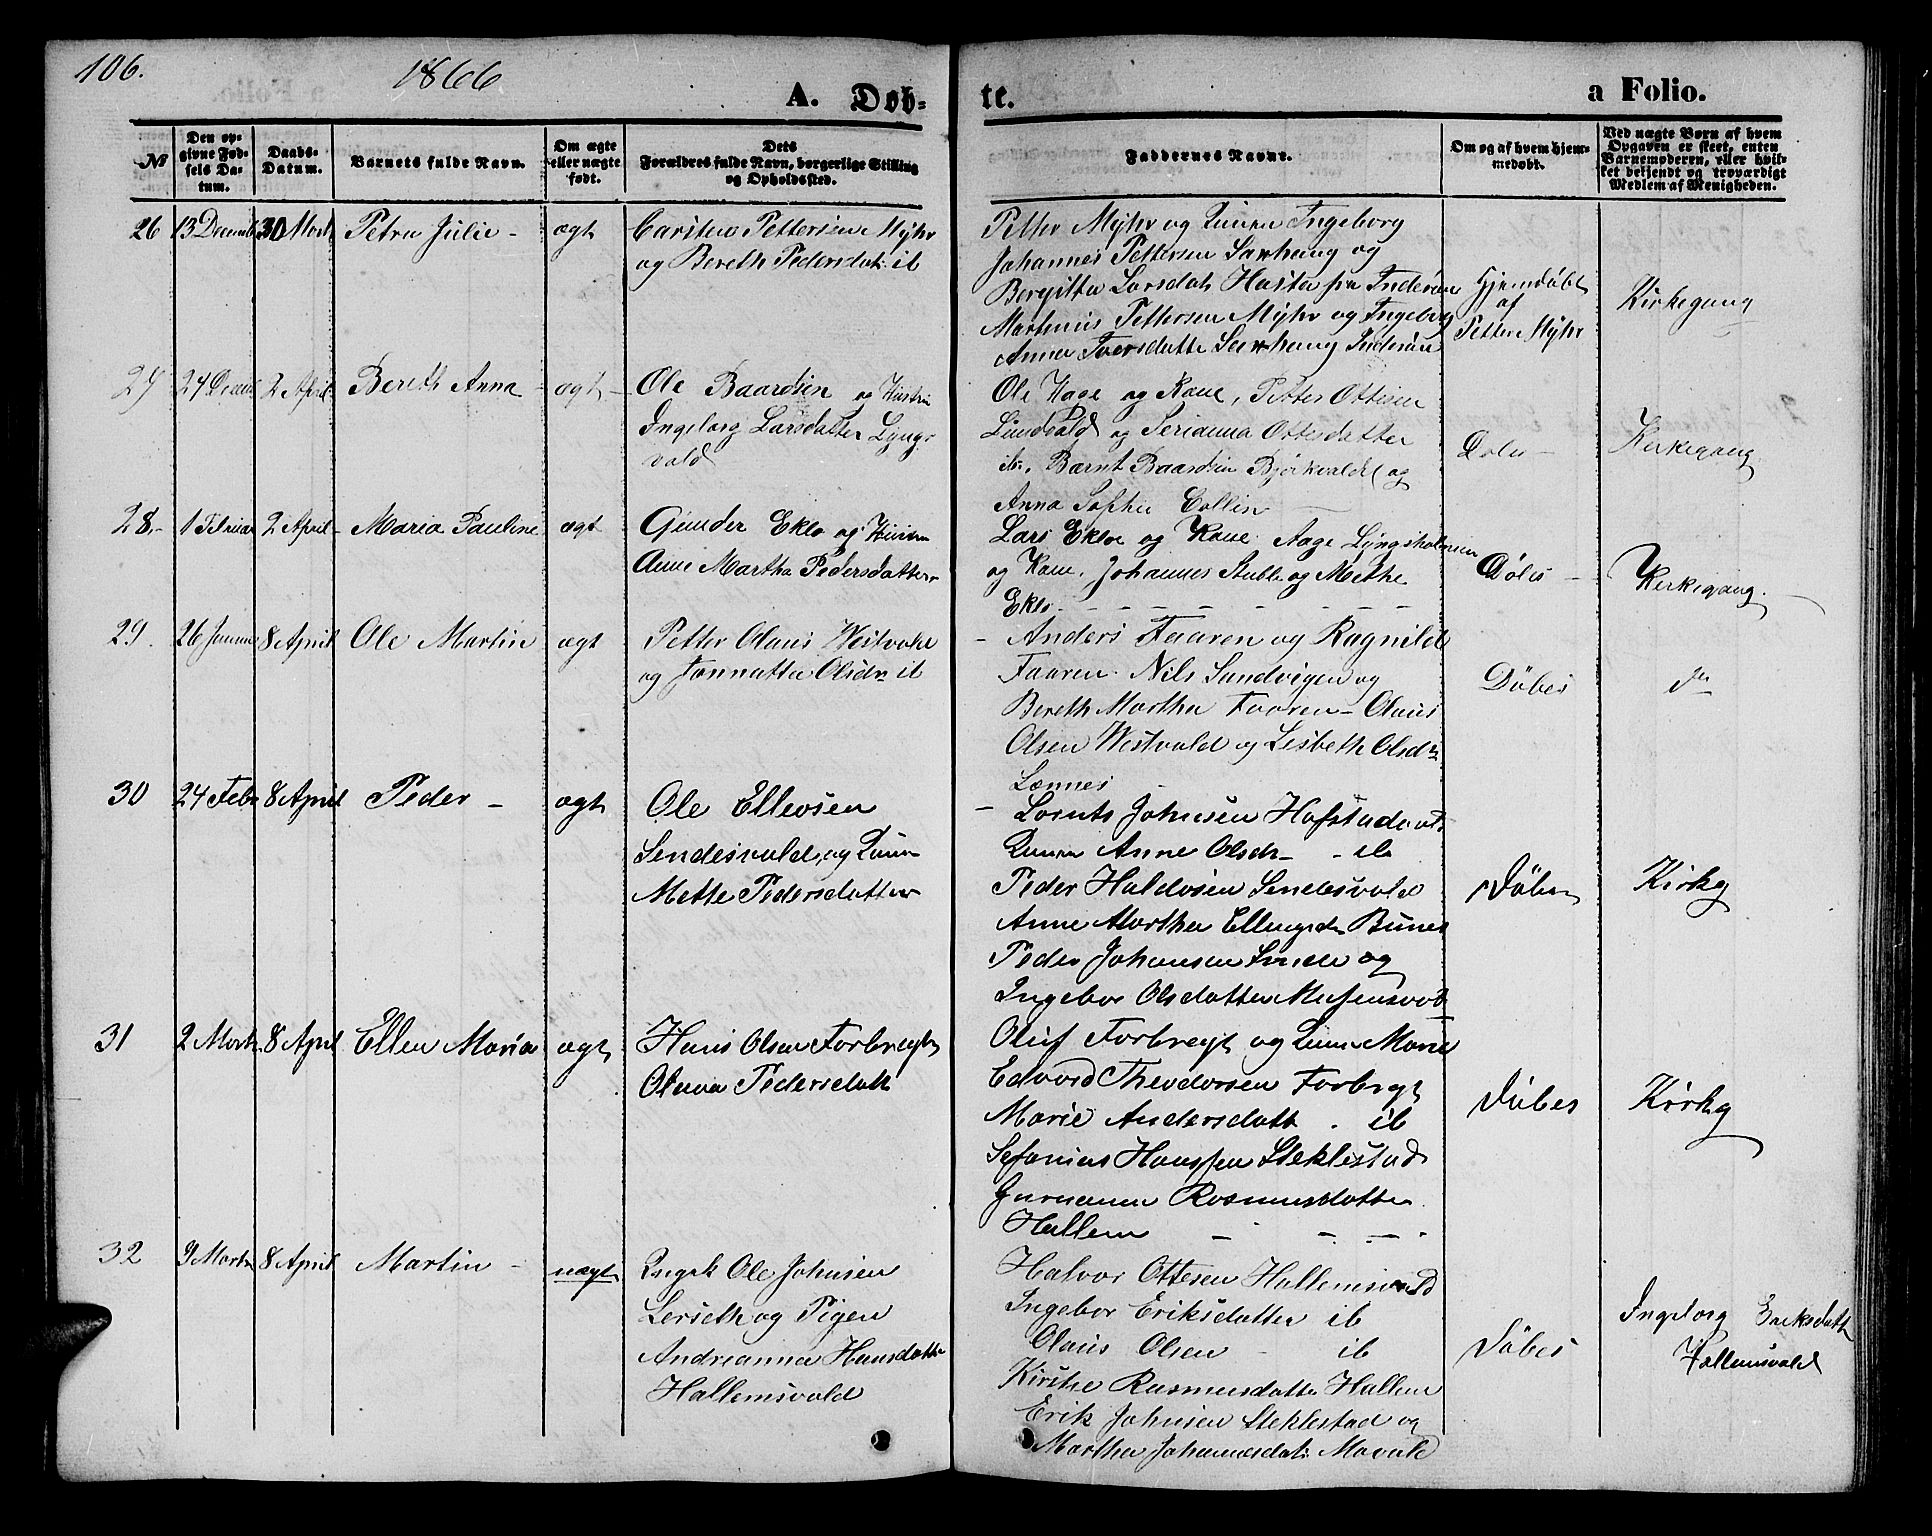 106.
1866
A. Døb-
te.
a Folio.
No
Den op-
givne Fød-
sels Da-
tum.
Daabs-
Datum.
Barnets fulde Navn.
Om ægte
eller uægte
født.
Dets
Forældres fulde Navn, borgerlige Stilling
og Opholdssted.
Faddernes Navne.
Om og af hvem hjem-
medøbt.
Ved uægte Børn af hvem
Opgaven er skeet, enten
Barnemoderen, eller hvil-
ket bekjendt og troværdigt
Medlem af Menigheden.
26 13 Decemb 30 Marts Petra Julie - ægt
Carsten Pettersen Myhr
og Bereth Pedersdat: ib
Petter Myhr og Ingeborg
Johannes Pettersen Saxhaug og
Bergitta Larsdat Hasta fra Inderøen
Martinus Pettersen Myhr og Ingeborg
Anna Saxhaug Inderøen
Hjemdøbt
af
Petter Myhr
Kirkegang
27 24 Decemb 2 April Bereth Anna - ægt -
Ole Baardsen og Hustru
Ingeborg Larsdatter Lyngs
vald
Ole Hage og Kone, Petter Ottesen
Lundvald og Serianna Ottesdatter
ib. Bernt Baardsen og
Anna Sophie Collin
Døbes -
Kirkegang
28.- 1 Februar 2 April - Maria Pauline ægt
Gunder Eklo og
Anne Martha Pedersdatter
Lars Ekloe og Kone. Aage Lyngsholmen
og Kone, Johannes Stubbe og Methe
Eklo - - - - - - - -
Døbes -
Kirkegang.
29. 26 Januar 8 April Ole Martin ægt
Petter Olaus Westvald
og Jonnatta Olsdr ib
- Anders Faaren og Ragnild
Faaren. Nils Sundvigen og
Bereth Martha Faaren - Olaus
Olsen Westvald og Lisbeth Olsdr
Lænnes -
Døbes
do
30 24 Febr 8 April Peder - ægt
Ole Ellevsen
Lendesvald, og
Mette Pedersdatter
- Lornts Johnsen Hofstad
Anne Olsdr - - ib
Peder Haldosen Lendesvald
Anne Martha Ellingsdr Bunes
Peder Johansen og
Ingebor Olsdatter
Døbes
Kirkg
31 2 Marts 8 April Ellen Maria ægt
Hans Olsen Forbregt
Oluva Pedersdatt
Oluf Forbregt og Marie
Edvard Theodorsen Forbregt
Marie Andersdatt . ib
Sefanias Hanssen Steklestad
Rasmusdatter
Hallem - - - -
Døbes
Kirkg
32 9 Marts 8 April Martin - uægt
Ungk Ole Johnsen
Lerseth og Pigen
Andreanna Hansdatter
Hallemsvald
Halvor Ottesen Hallemsvald
Ingebor Eriksdatter ib
Olaus Olsen - ib
Kirsthe Rasmusdatter Hallem
Erik Johnsen Steklestad og
Martha Johannesdat: Movald
Døbes
Ingeborg Eriksdatt
Hallemsvald